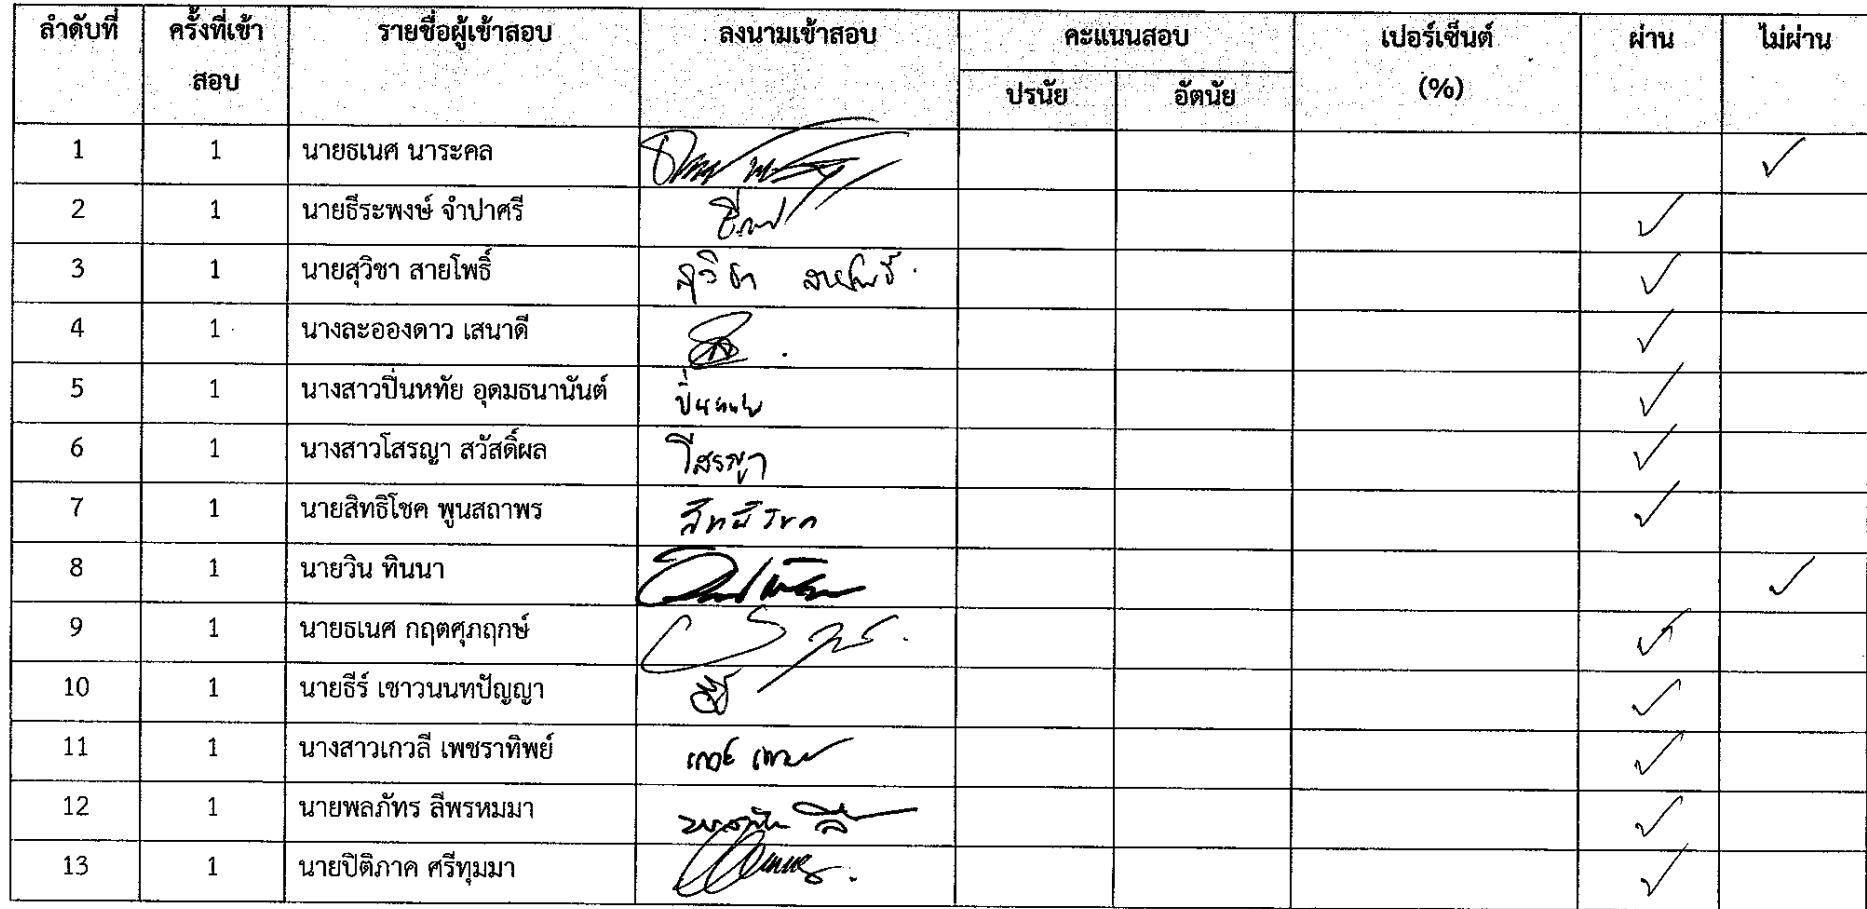 ลำดับที่ ครั้งที่เข้าสอบ รายชื่อผู้เข้าสอบ ลงนามเข้าสอบ คะแนนสอบ เปอร์เซ็นต์ (%) ผ่าน ไม่ผ่าน
ปรนัย อัตนัย
1 1 นายธเนศ นาระคล ✓
2 1 นายธีระพงษ์ จำปาศรี ✓
3 1 นายสุวิชา สายโพธิ์ สุวิชา สายโพธิ์ ✓
4 1 นางละอองดาว เสนาดี ✓
5 1 นางสาวปิ่นหทัย อุดมธนานันต์ ปิ่นหทัย ✓
6 1 นางสาวโสรญา สวัสดิ์ผล โสรญา ✓
7 1 นายสิทธิโชค พูนสถาพร สิทธิโชค ✓
8 1 นายวิน ทินนา ✓
9 1 นายธเนศ กฤตศุภฤกษ์ ✓
10 1 นายธีร์ เชาวนนทปัญญา ✓
11 1 นางสาวเกวลี เพชราทิพย์ ✓
12 1 นายพลภัทร ลีพรหมมา ✓
13 1 นายปิติภาค ศรีทุมมา ✓